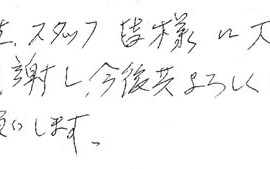 スタッフ皆様に大
謝し、今後共よろしく
します。